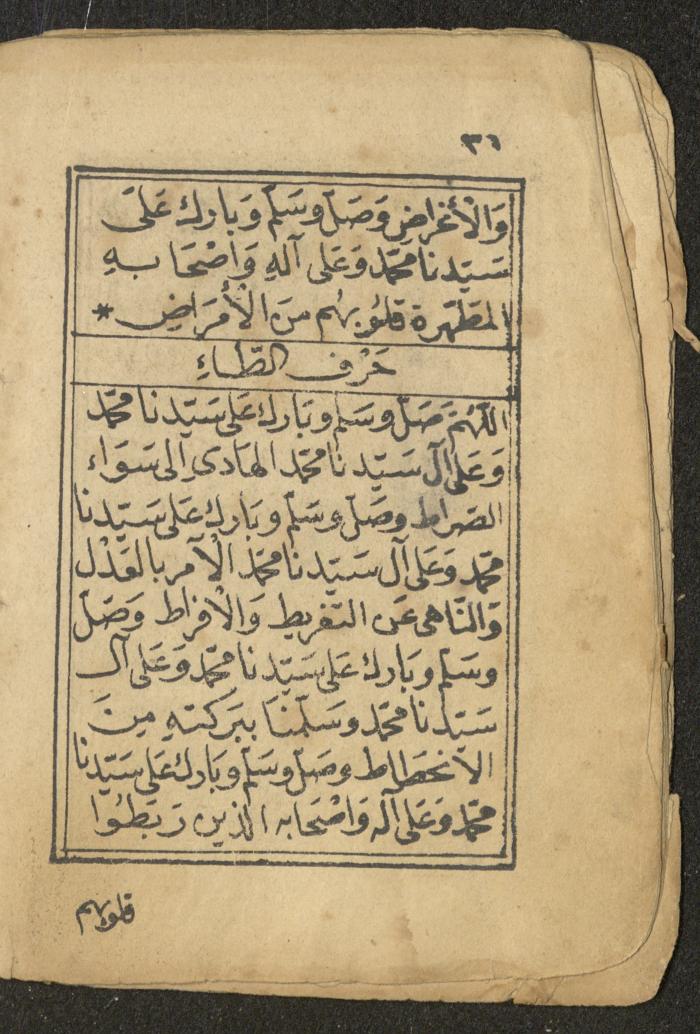 ٣٦
وَالْأَغْرَاضِ وَصَلِّ وسَلِّم وَبَارك عَلَى
سَيّدنا محمّد وَعَلى آلهِ وَاصْحَابهِ
المطَهّرة قلُوبهُم منَ الْأَمْرَاضِ *
حَرْف الطَّاءِ
اللّهُمّ صَلّ وسَلّم وبَارك عَلى سَيّدنا محمّد
وَعَلى آل سَيّدنا محمّد الهَادى الى سَوَاء
الصّراط وصَلّ وسَلّم وبَارك عَلى سَيّدنا
محمّد وَعَلى آل سَيّدنا محمّد الْآمر بالعَدْل
وَالنّاهى عَن التفريط وَالْافراط وَصَلّ
وسَلّم وبَارك عَلى سَيّدنا محمّد وَعَلى آل
سَيّدنا محمّد وسَلّمنَا ببَركتهِ منَ
الانحطَاط وصَلّ وسَلّم وبَارك عَلى سَيّدنا
محمّد وَعَلى آله وَاصْحَابه الذين رَبَطُوا
قلوبهم